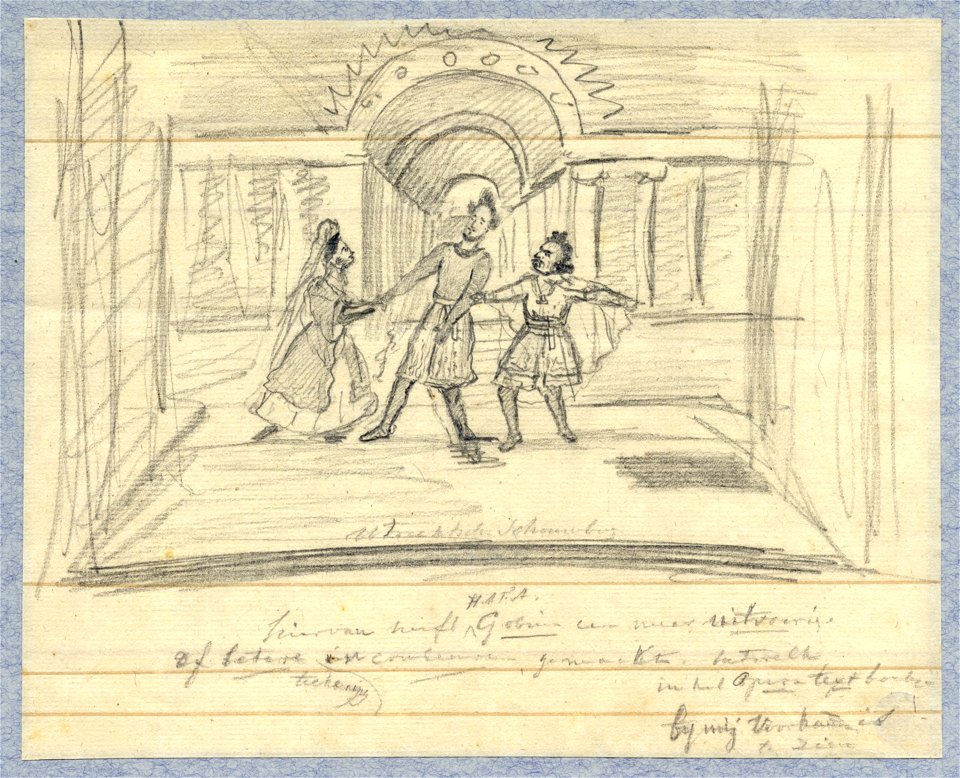 Utrechtsche Schouwburg
H.A.P.A.
hiervan heeft Gobius een meer uitvoerige
of betere in gemaakt. hetwelk
teekening
in het Opera text boekje
by mij Voorhanden is
te zien